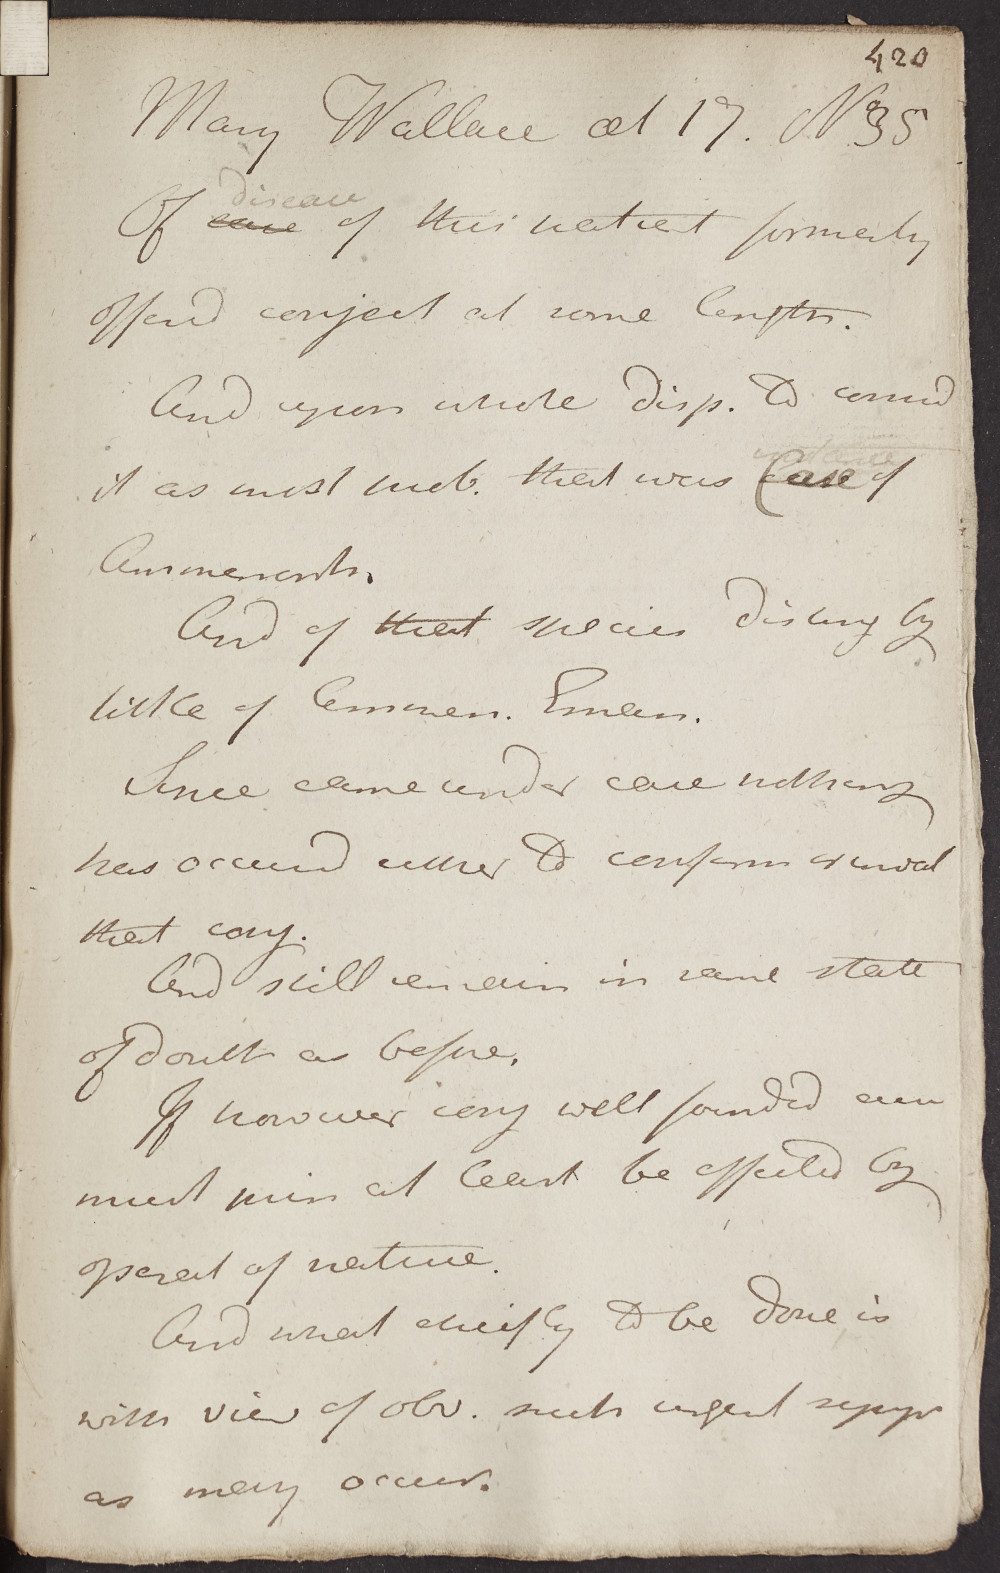 420
Mary Wallace æt 17. No 35
disease
Of case of this patient formerly
offerd conject at some length.
And upon whole disp. to consid
it as most prob. that was Case of
Amenorrh.
And of that species disting by
title of Amenorr. Eman.
Since came under care nothing
has occurrd either to confirm or inval
that conj.
And still remain in same state
of doubt as before.
If however conj well founded cure
must prin at least be effected by
operat of nature.
And what chiefly to be done is
with view of obv. such urgent sympt
as may occur.